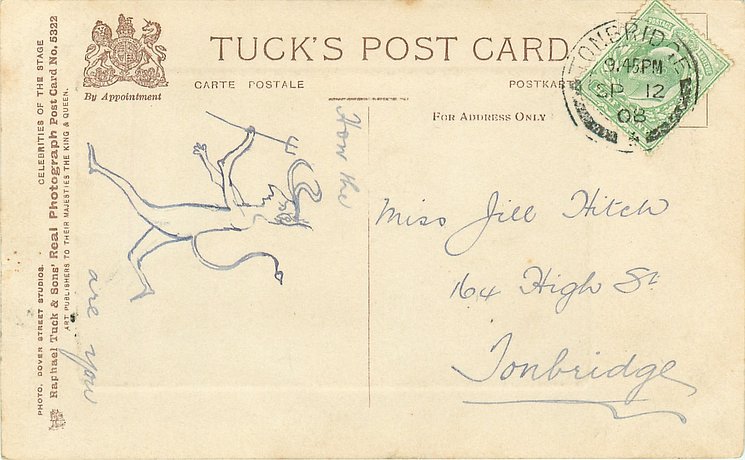 TUCK'S POST CARD
CARTE POSTALE
POSTKAR
By Appointment
FOR ADDRESS ONLY
TONBRIDGE
9.45PM
SP 12
08
POSTAGE
How the
are you
Miss Jill Hitch
164 High St
Tonbridge
PHOTO. DOVER STREET STUDIOS. CELEBRITIES OF THE STAGE
Raphael Tuck & Sons' Real Photograph Post Card No. 5322
ART PUBLISHERS TO THEIR MAJESTIES THE KING & QUEEN.